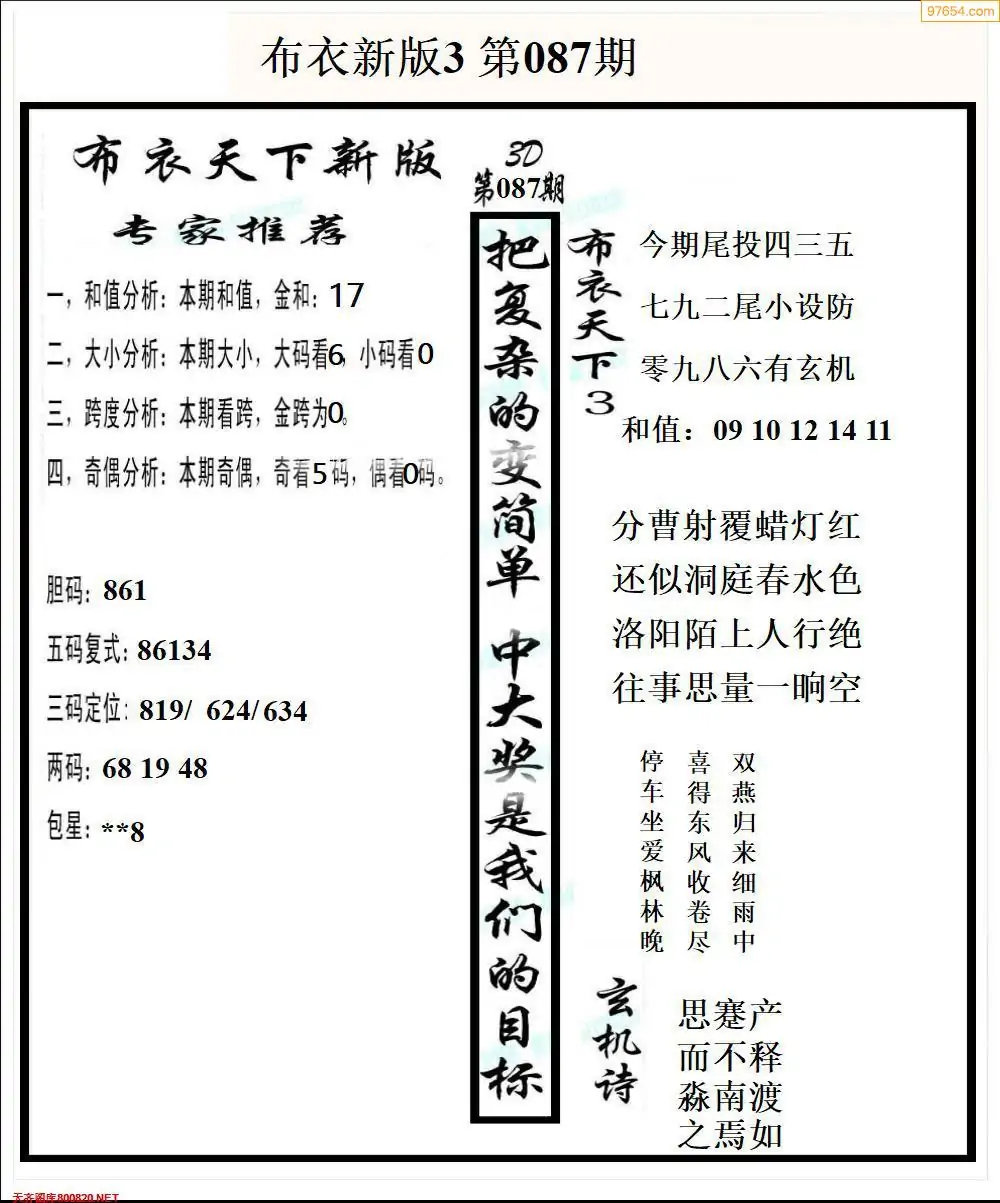 97654.com
布衣新版3 第087期
布衣天下新版
专家推荐
一，和值分析：本期和值，金和：17
二，大小分析：本期大小，大码看6，小码看0
三，跨度分析：本期看跨，金跨为0。
四，奇偶分析：本期奇偶，奇看5码，偶看0码。
胆码：861
五码复式：86134
三码定位：819/ 624/634
两码：68 19 48
包星：**8
3D
第087期
把复杂的变简单 中大奖是我们的目标
布衣天下3
今期尾投四三五
七九二尾小设防
零九八六有玄机
和值：09 10 12 14 11
分曹射覆蜡灯红
还似洞庭春水色
洛阳陌上人行绝
往事思量一晌空
停车坐爱枫林晚
喜得东风收卷尽
双燕归来细雨中
玄机诗
思蹇产
而不释
淼南渡
之焉如
天齐图库800820.NET